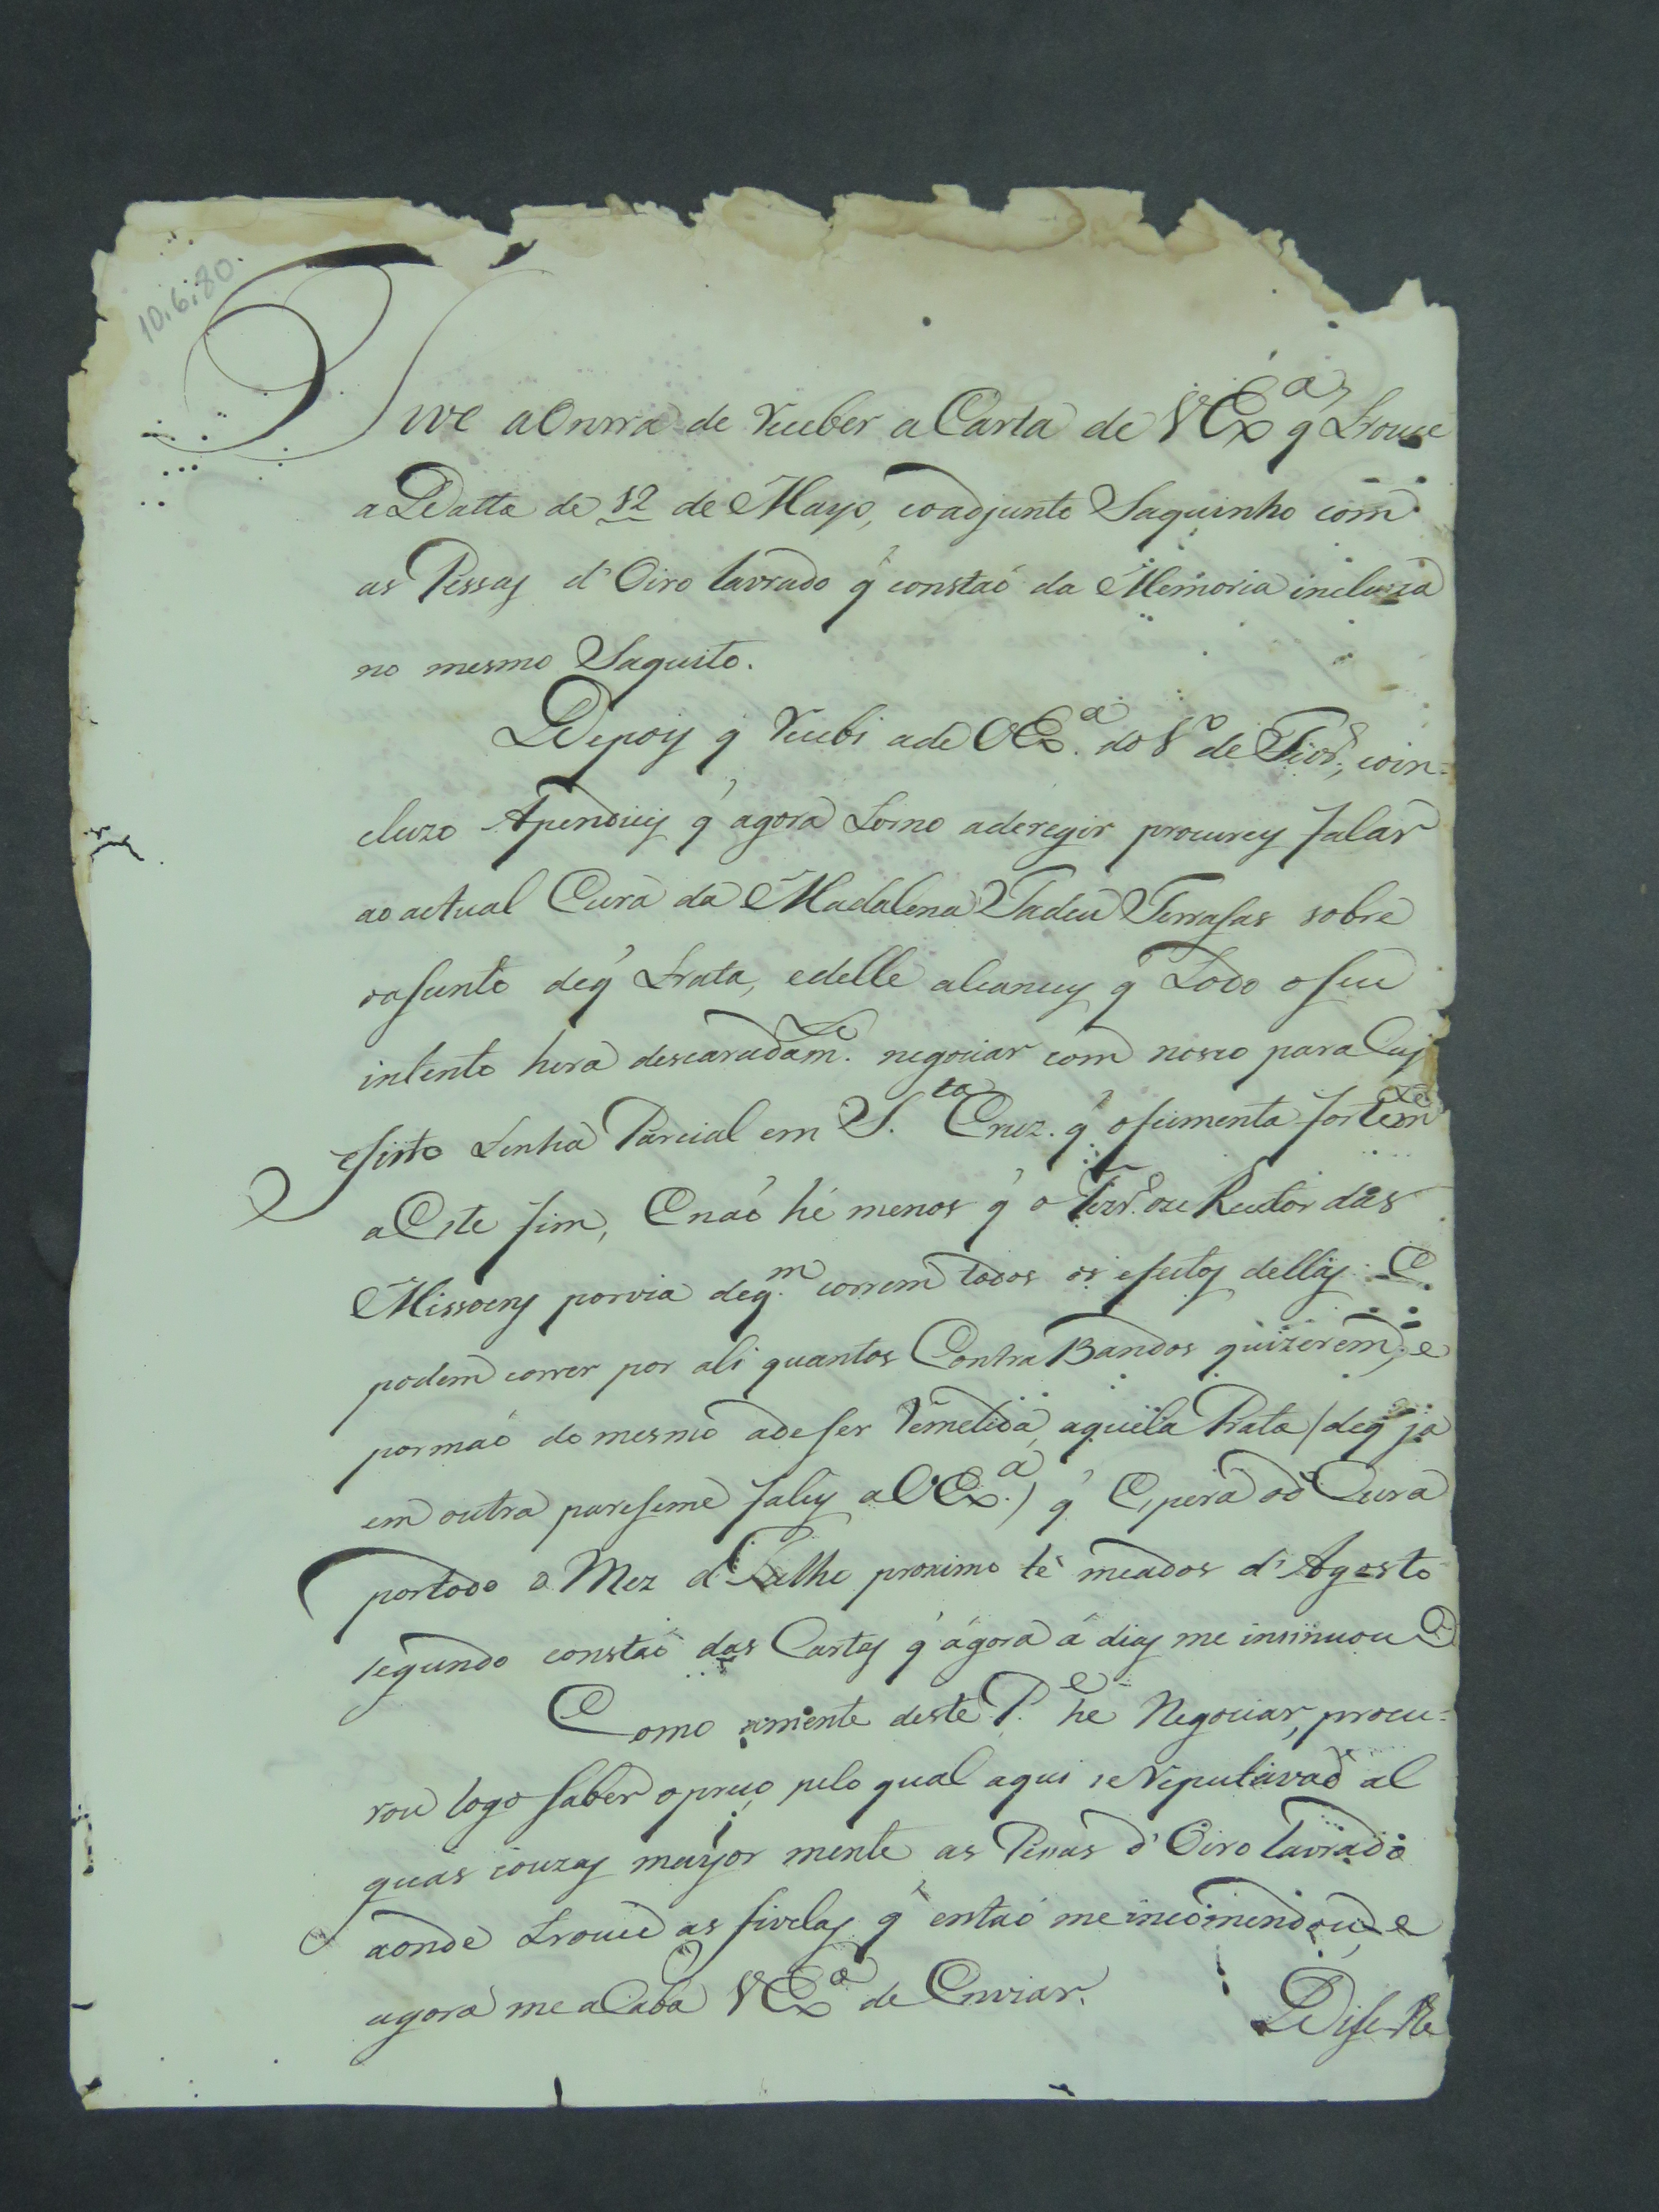 10.6.80.
Tive a Onrra de receber a Carta de VEx.ª q̃ trouce
a Datta de 12 de Mayo, coadjunto Saquinho com
as Pessas d'Oiro lavrado q̃ constaõ da Memoria incluza
no mesmo Saquito.
Depois q̃ recebi a de VEx.ª do 1º de Fevrº, coin-
cluzo Apendices q̃ agora torno aderegir procurey falar
ao actual Cura da Madalena Tadeu Terrasas sobre
oasunto deq̃ trata, edelle alcancey q̃ todo oseu
intento hera descaradamte. negociar com nosco para cuj
efeito tenha Parcial em S.ta Cruz. q̃ ofumenta fortemte
a Este fim, Enaõ hé menos q̃ o ou Reitor das
Missoens porvia deq.m correm todos os efeitos dellas: E
podem correr por ali quantos Contra Bandos quizerem, e
pormaõ do mesmo adeser remetida aquela Prata (deq̃ ja
em outra pareseme faley a VEx.ª) q̃ Espera od Cura
portodo o Mez d'Julho proximo té meados d'Agosto
segundo constaõ das Cartas q̃ ágora á dias me insinuou
Como amente deste P.e he Negociar, procu-
rou logo saber opreço pelo qual aqui se reputavaõ al
guas couzas mayor mente as Pessas d'Oiro lavrado
aonde trouce as fivelas q̃ entaõ me incomendou, e
agora me aCaba VEx.ª de Enviar.
Dise-lhe